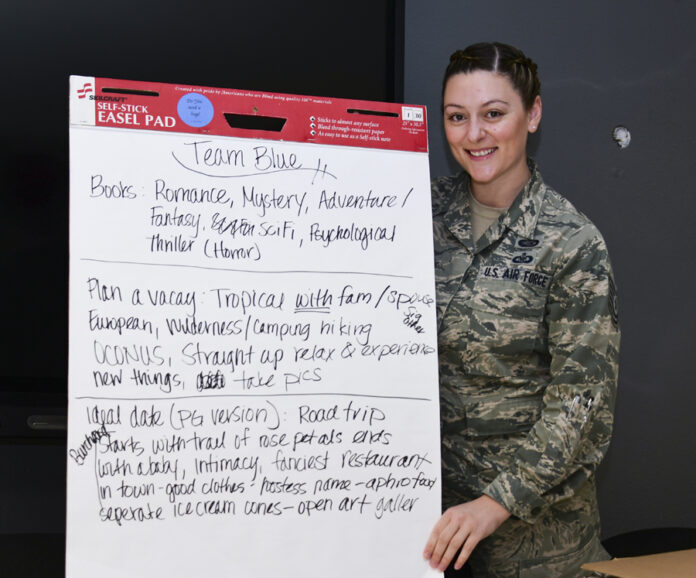 Created with pride by Americans who are Blind using quality 3M™ materials
SKILCRAFT
SELF-STICK
EASEL PAD
Do you need a logo?
Sticks to almost any surface
Bleed through-resistant paper
As easy to use as a Self-stick note
1 30
25" x 30.5"
Team Blue
Books: Romance, Mystery, Adventure/
Fantasy, SciFi, Psychological
thriller (Horror)
Plan a vacay: Tropical with fam/spouse
Sig other
European, Wilderness/camping hiking
OCONUS, Straight up relax & experience
new things, take pics
Ideal date (PG version): Road trip
Starts with trail of rose petals ends
with a baby, intimacy, fanciest restaurant
in town - good clothes - hostess name - aphro food
seperate ice cream cones - open art galler
U.S. AIR FORCE